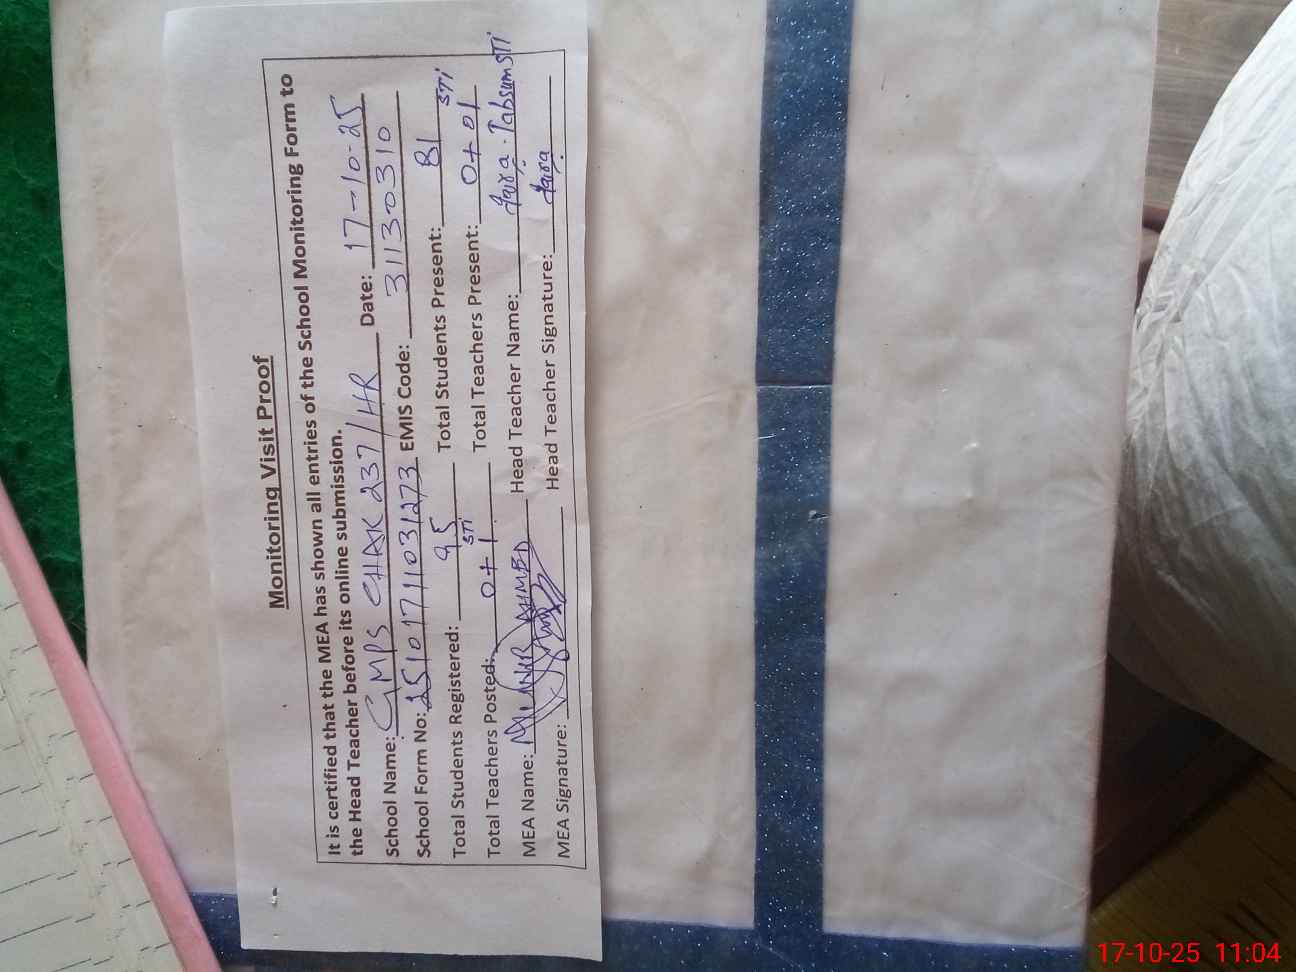 Monitoring Visit Proof
It is certified that the MEA has shown all entries of the School Monitoring Form to
the Head Teacher before its online submission.
School Name: GMPS CHAK 237/HR Date: 17-10-25
School Form No: 2510171031273 EMIS Code: 31130310
Total Students Registered: 95 Total Students Present: 81
Total Teachers Posted: 0+1 STI Total Teachers Present: 0+01 STI
MEA Name: AHMED Head Teacher Name: Tabsum STI
MEA Signature: Head Teacher Signature:
17-10-25 11:04